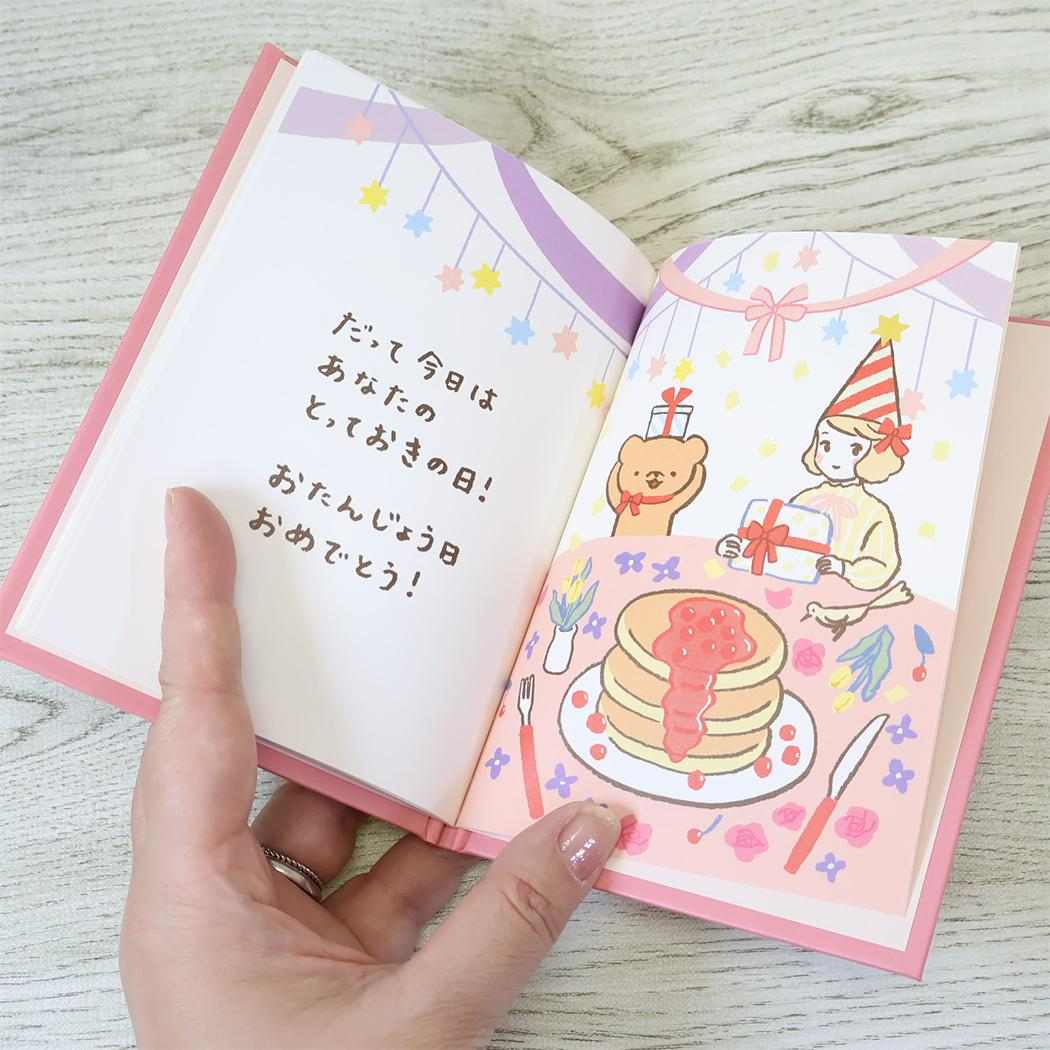 だって今日は
あなたの
とっておきの日!
おたんじょう日
おめでとう!